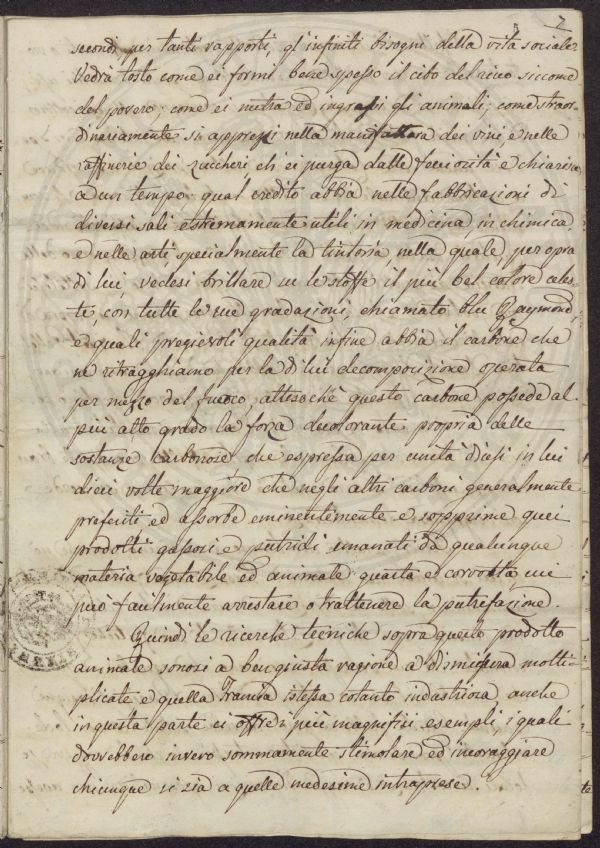 7
secondi per tanti rapporti, gl'infiniti bisogni della vita sociale.
Vedrà tosto come ei formi bene spesso il cibo del ricco siccome
del povero; come ei nutra ed ingrassi gli animali; come straor-
dinariamente si apprezzi nella manifattura dei vini, e nelle
raffinerie dei zuccheri, ch'ei purga dalle fecciosità e chiarisce
a un tempo: qual credito abbia nelle fabbricazioni di
diversi sali estremamente utili in medicina, in chimica,
e nelle arti, specialmente la tintoria, nella quale, per opra
di lui, vedesi brillare su le stoffe il più bel colore celes-
te, con tutte le sue gradazioni, chiamato blu Raymond,
e quali pregievoli qualità infine abbia il carbone che
ne ritragghiamo per la di lui decomposizione operata
per mezzo del fuoco, attesochè questo carbone possede al
più alto grado la forza decolorante propria delle
sostanze carbonose, che espressa per unità dicesi in lui
dieci volte maggiore che negli altri carboni generalmente
preferiti ed assorbe eminentemente e sopprime quei
prodotti gassosi e putridi emanati da qualunque
materia vegetabile ed animale guasta e corrotta, cui
può facilmente arrestare o trattenere la putrefazione.
Quindi le ricerche tecniche sopra questo prodotto
animale sonosi a ben giusta ragione a dismisura molti-
plicate e quella Francia istessa cotanto industriosa, anche
in questa parte ci offre i più magnifici esempli, i quali
dovrebbero invero sommamente stimolare ed incoraggiare
chicunque si zia a quelle medesime intraprese.